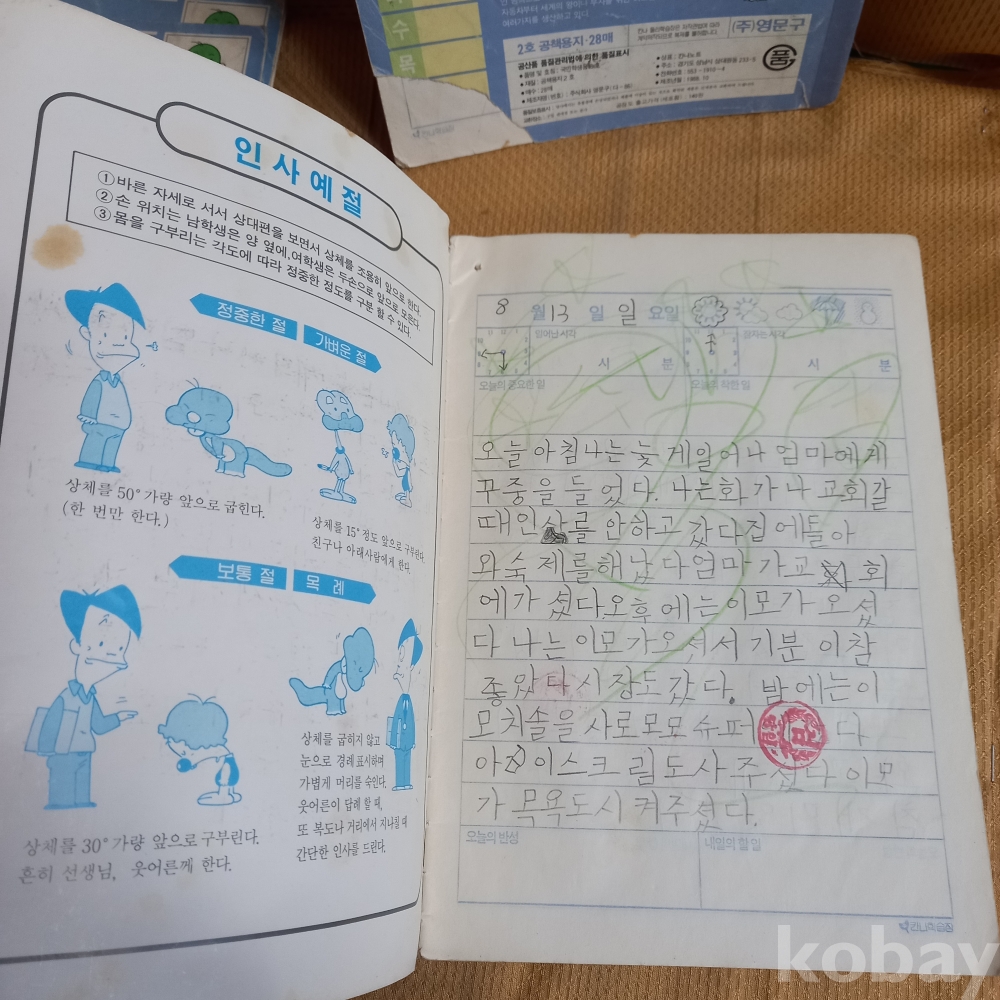 수
목
(주)영문구
2호 공책용지·28매
공산품 품질관리법에 의한 품질표시
품
인사예절
①바른 자세로 서서 상대편을 보면서 상체를 조용히 앞으로 한다.
②손 위치는 남학생은 양 옆에,여학생은 두손으로 앞으로 모은다.
③몸을 구부리는 각도에 따라 정중한 정도를 구분 할 수 있다.
정중한 절 가벼운 절
상체를 50°가량 앞으로 굽힌다.
(한 번만 한다.)
상체를 15°정도 앞으로 구부린다.
친구나 아래사람에게 한다.
보통 절 목례
상체를 30°가량 앞으로 구부린다.
흔히 선생님, 웃어른께 한다.
상체를 굽히지 않고
눈으로 경례 표시하며
가볍게 머리를 숙인다.
웃어른이 답례 할 때,
또 복도나 거리에서 지나칠 때
간단한 인사를 드린다.
8 월 13 일 일 요일
일어난 시각 시 분 잠자는 시각 시 분
오늘의 중요한 일 오늘의 착한 일
오늘 아침 나는 늦게 일어나 엄마에게
꾸중을 들었다. 나는 화가 나 교회갈
때 인사를 안하고 갔다 집에 돌아
와 숙제를 해났다 엄마가 교 회
에 가셨다. 오후에는 이모가 오셨
다 나는 이모가 오셔서 기분이 참
좋았다 시장도 갔다. 밤에는 이
모 치솔을 사로 모모 슈퍼 다
아 이스크림도 사주셨다 이모
가 목욕도 시켜주셨다.
오늘의 반성 내일의 할 일
kobay